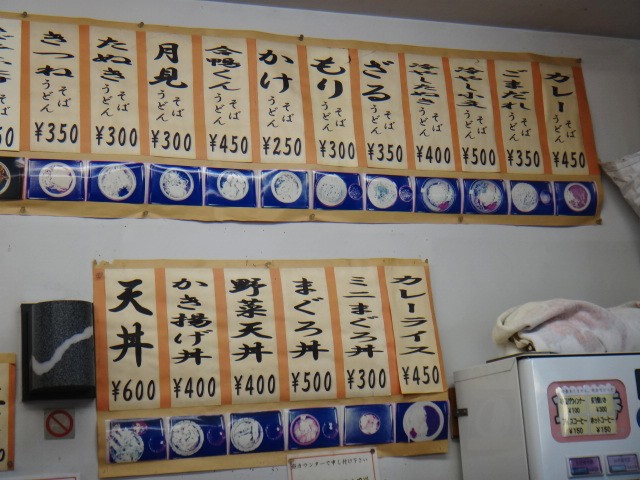 カレー そば うどん ¥450
ごまだれ そば うどん ¥350
冷し小玉 そば うどん ¥500
冷したぬき そば うどん ¥400
ざる そば うどん ¥350
もり そば うどん ¥300
かけ そば うどん ¥250
合鴨くん そば うどん ¥450
月見 そば うどん ¥300
たぬき そば うどん ¥300
きつね そば うどん ¥350
カレーライス ¥450
ミニまぐろ丼 ¥300
まぐろ丼 ¥500
野菜天丼 ¥400
かき揚げ丼 ¥400
天丼 ¥600